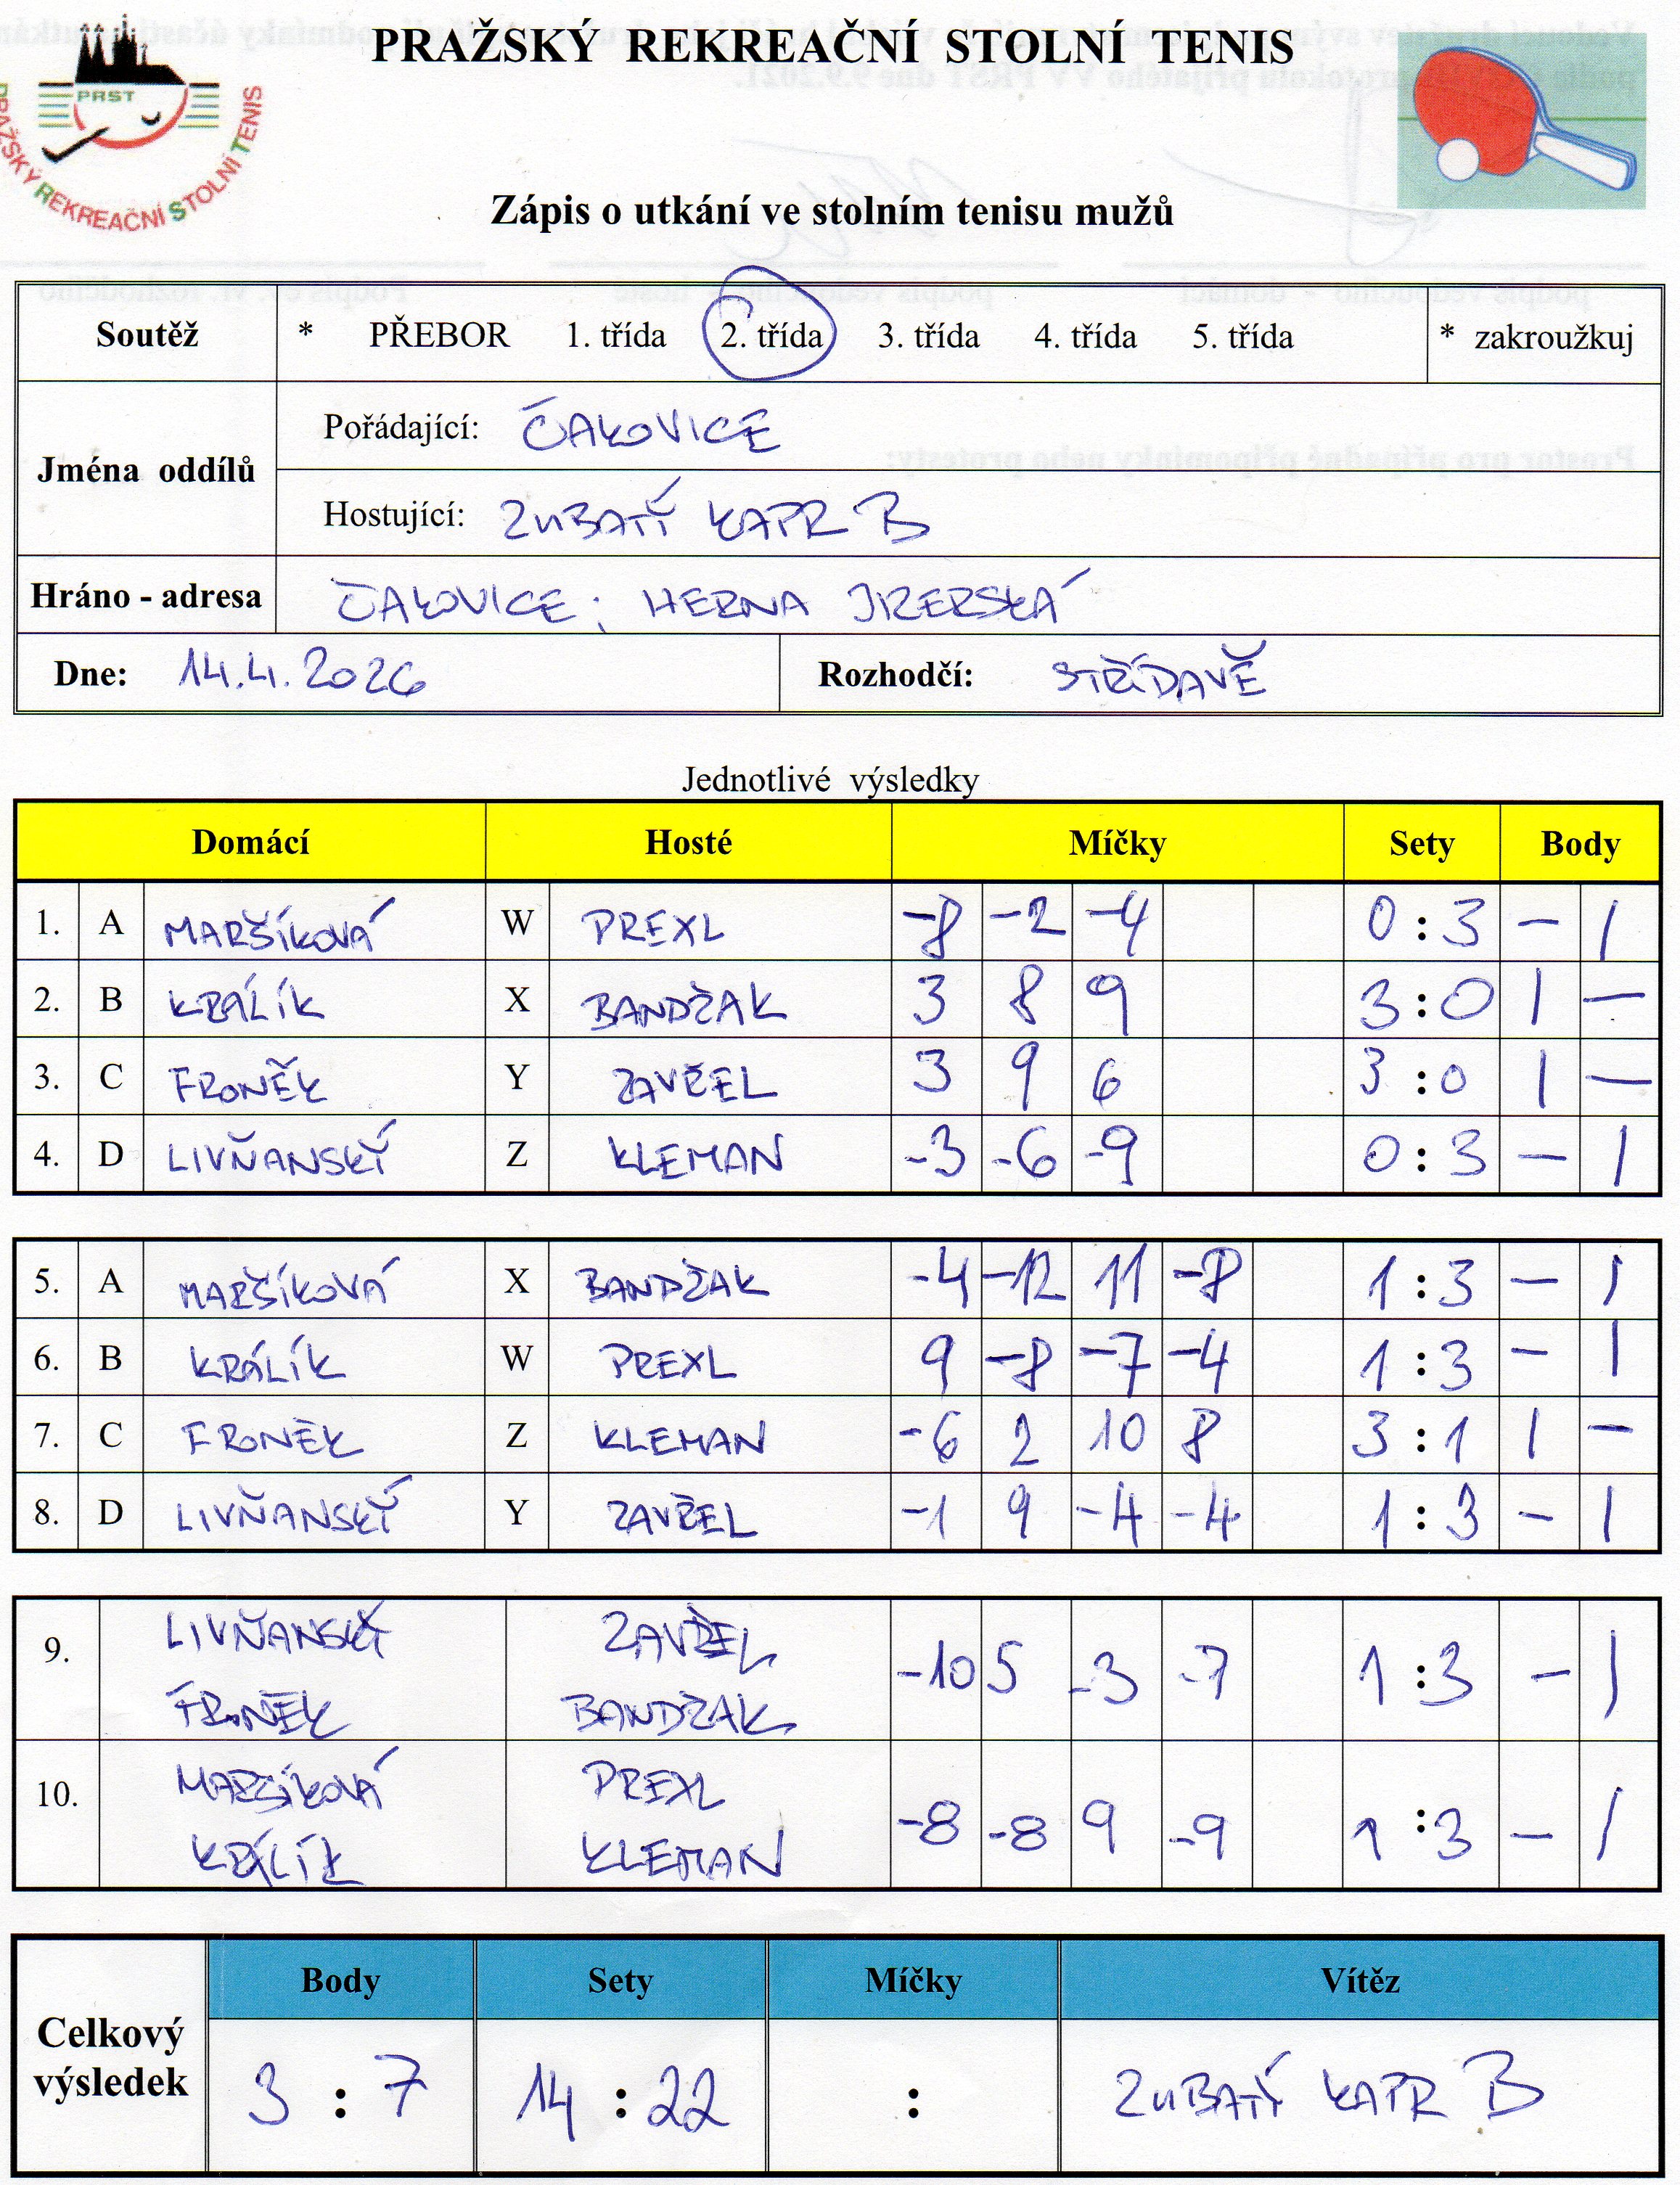 PRAŽSKÝ REKREAČNÍ STOLNÍ TENIS
PRST
PRAŽSKÝ REKREAČNÍ STOLNÍ TENIS
Zápis o utkání ve stolním tenisu mužů
Soutěž * PŘEBOR 1. třída 2. třída 3. třída 4. třída 5. třída * zakroužkuj
Jména oddílů
Pořádající: ČAKOVICE
Hostující: ZUBATÝ KAPR B
Hráno - adresa ČAKOVICE; HERNA JIZERSKÁ
Dne: 14.4.2026 Rozhodčí: STŘÍDAVĚ
Jednotlivé výsledky
Domácí Hosté Míčky Sety Body
1. A MARŠÍKOVÁ W PREXL -8 -2 -4 0 : 3 - 1
2. B KRÁLÍK X BANDŽAK 3 8 9 3 : 0 1 -
3. C FRONĚK Y ZAVŘEL 3 9 6 3 : 0 1 -
4. D LIVŇANSKÝ Z KLEMAN -3 -6 -9 0 : 3 - 1
5. A MARŠÍKOVÁ X BANDŽAK -4 -12 11 -8 1 : 3 - 1
6. B KRÁLÍK W PREXL 9 -8 -7 -4 1 : 3 - 1
7. C FRONĚK Z KLEMAN -6 2 10 8 3 : 1 1 -
8. D LIVŇANSKÝ Y ZAVŘEL -1 9 -4 -4 1 : 3 - 1
9. LIVŇANSKÝ ZAVŘEL -10 5 -3 -7 1 : 3 - 1
FRONĚK BANDŽAK
10. MARŠÍKOVÁ PREXL -8 -8 9 -9 1 : 3 - 1
KRÁLÍK KLEMAN
Body Sety Míčky Vítěz
Celkový výsledek 3 : 7 14 : 22 : ZUBATÝ KAPR B